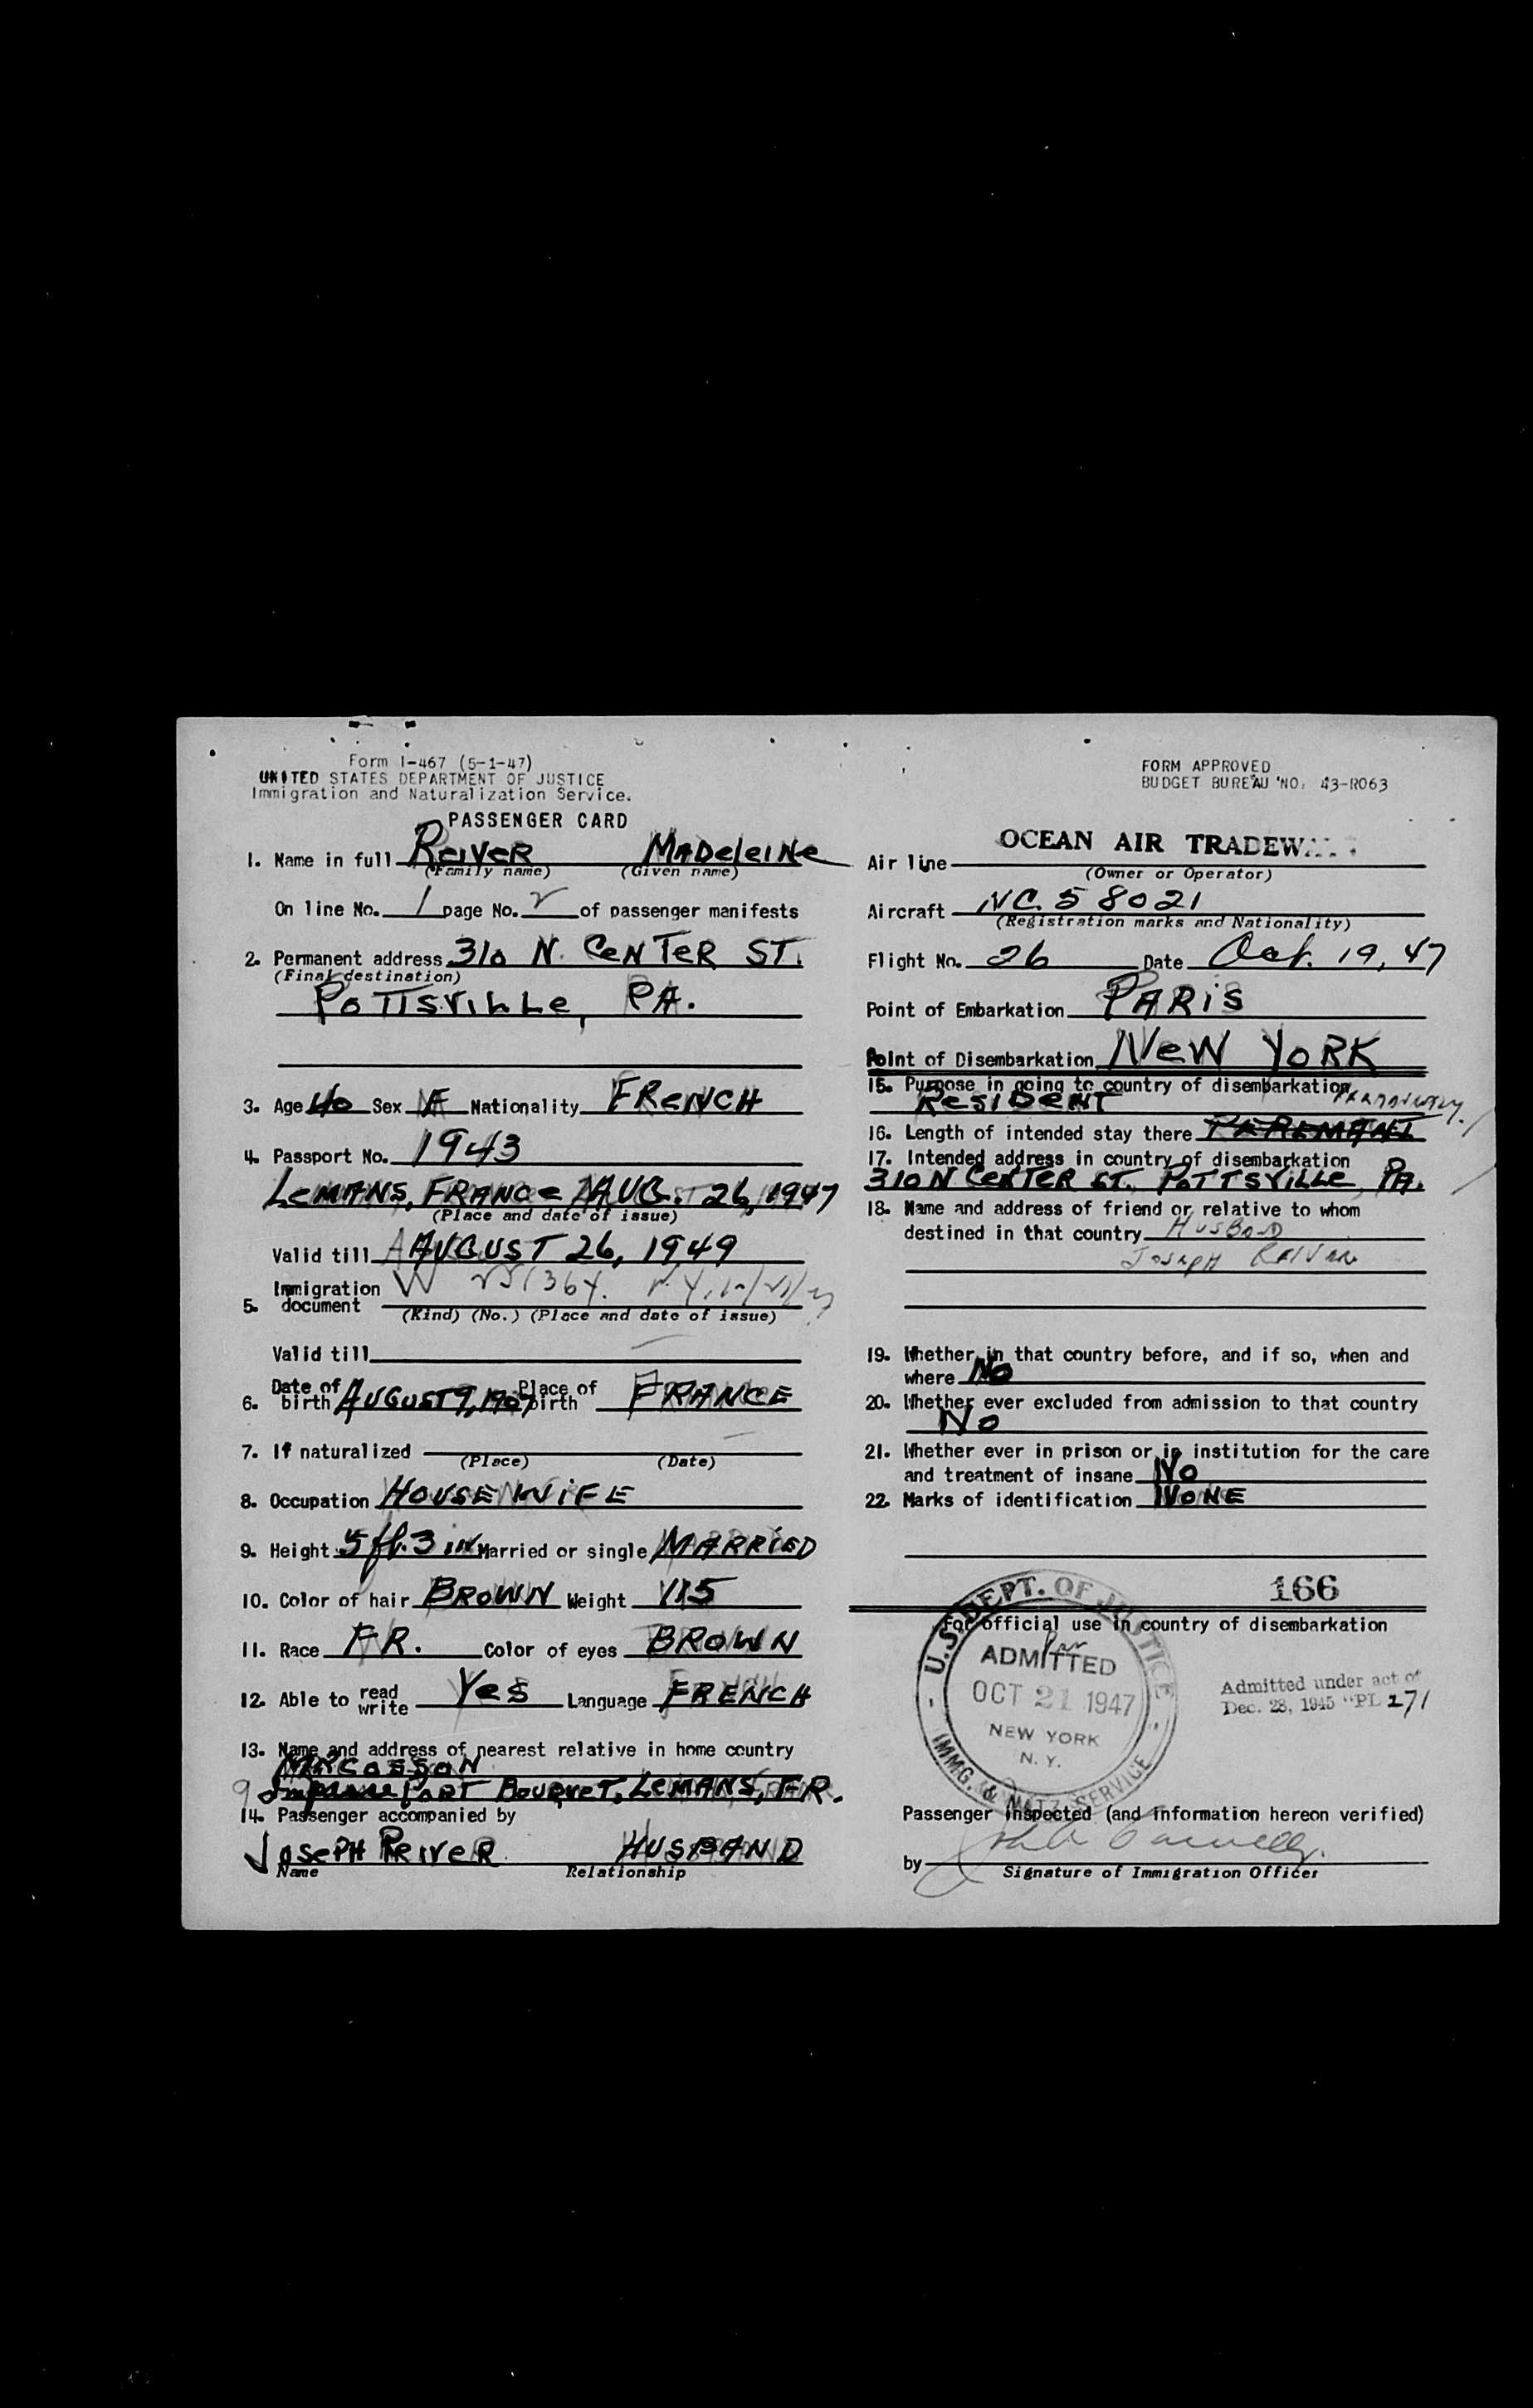 Form I-467 (5-1-47)
UNITED STATES DEPARTMENT OF JUSTICE
Immigration and Naturalization Service.
PASSENGER CARD
1. Name in full REIVER MADELEINE
(Family name) (Given name)
On line No. 1 page No. 2 of passenger manifests
2. Permanent address 310 N. CENTER ST.
(Final destination)
POTTSVILLE, PA.
3. Age 40 Sex F Nationality FRENCH
4. Passport No. 1943
LEMANS, FRANCE AUG. 26, 1947
(Place and date of issue)
Valid till AUGUST 26, 1949
Immigration
5. document
(Kind) (No.) (Place and date of issue)
Valid till
6. Date of birth AUGUST 9, 1907 Place of birth FRANCE
7. If naturalized
(Place) (Date)
8. Occupation HOUSE WIFE
9. Height 5 ft. 3 in Married or single MARRIED
10. Color of hair BROWN Weight 115
11. Race FR. Color of eyes BROWN
12. Able to read write YES Language FRENCH
13. Name and address of nearest relative in home country
9 PORT BOUQUET, LEMANS, FR.
14. Passenger accompanied by
JOSEPH REIVER HUSBAND
Name Relationship
FORM APPROVED
BUDGET BUREAU NO. 43-R063
OCEAN AIR
Air line
(Owner or Operator)
Aircraft NC. 58021
(Registration marks and Nationality)
Flight No. 26 Date Oct. 19, 47
Point of Embarkation PARIS
Point of Disembarkation NEW YORK
15. Purpose in going to country of disembarkation
RESIDENT
16. Length of intended stay there
17. Intended address in country of disembarkation
310 N CENTER ST. POTTSVILLE, PA.
18. Name and address of friend or relative to whom
destined in that country HUSBAND
JOSEPH
19. Whether in that country before, and if so, when and
where NO
20. Whether ever excluded from admission to that country
NO
21. Whether ever in prison or in institution for the care
and treatment of insane NO
22. Marks of identification NONE
166
For official use in country of disembarkation
U.S. DEPT. OF JUSTICE
ADMITTED
OCT 21 1947
NEW YORK
N. Y.
IMMG. & NATZ. SERVICE
Admitted under act of
Dec. 28, 1945 "PL 271
Passenger inspected (and information hereon verified)
by
Signature of Immigration Officer